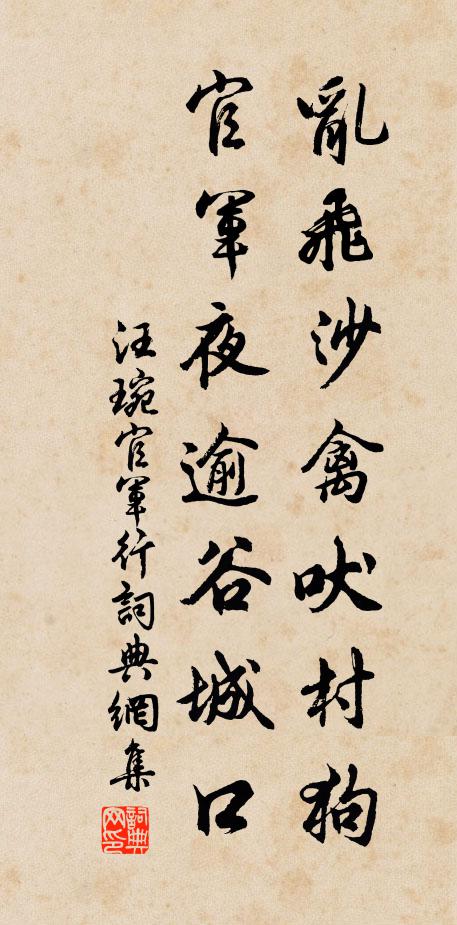 亂飛沙禽吠村狗
官軍夜逾谷城口
汪琬官軍行詞典網集
詞典网印